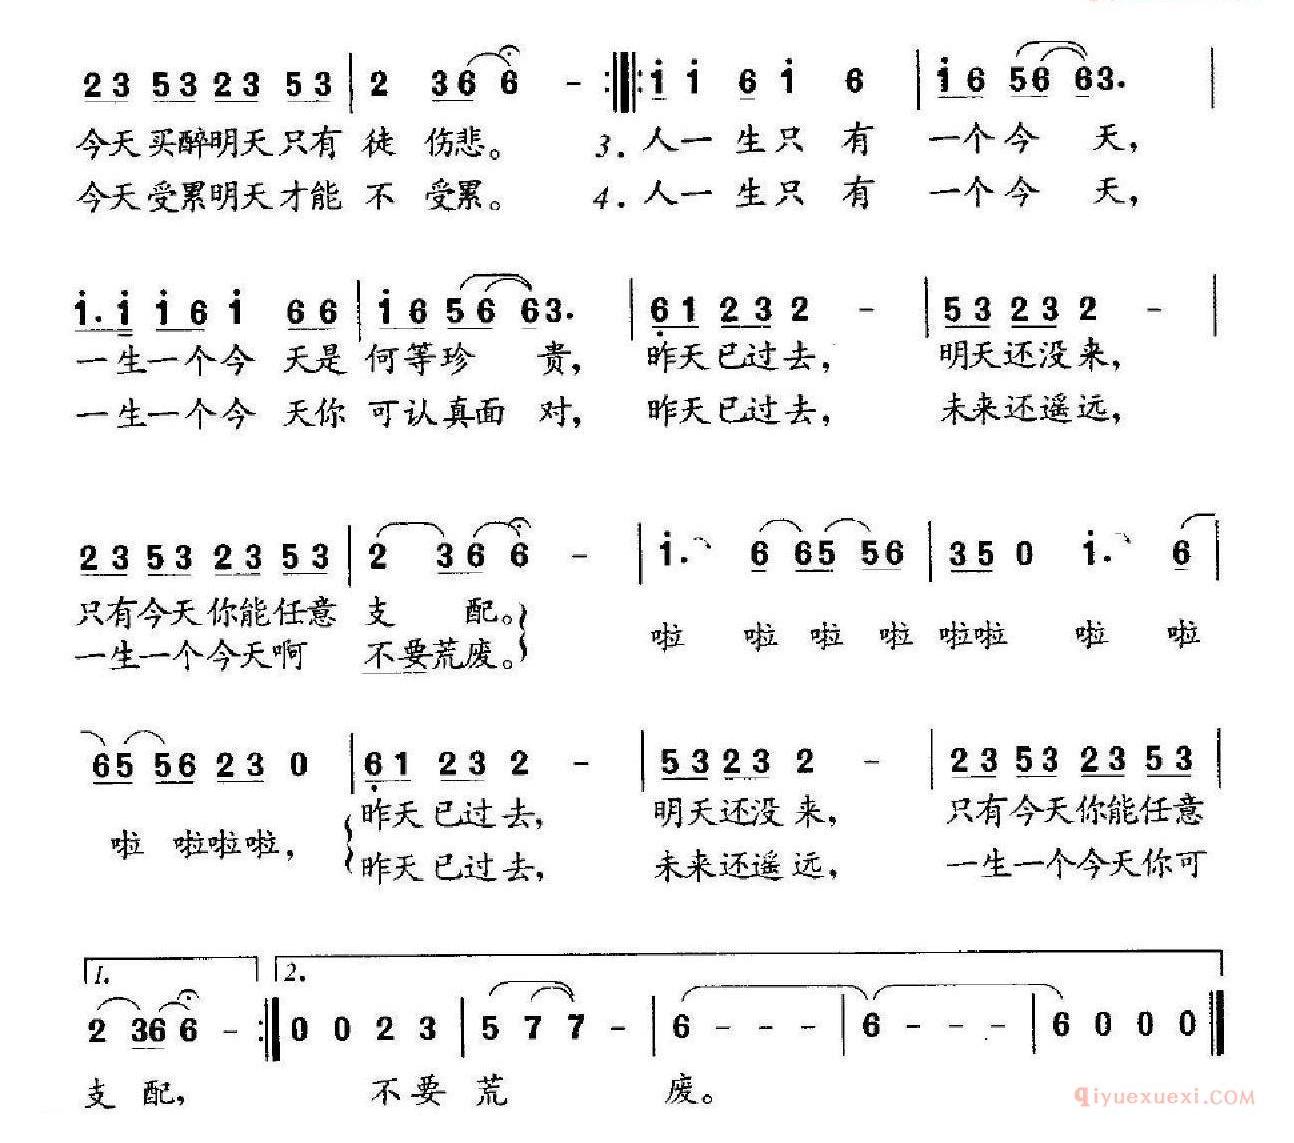 2 3 5 3 2 3 5 3 | 2 3 6 6 - :‖: i i 6 i 6 | i 6 5 6 6 3. |
今天买醉明天只有 徒 伤悲。 3. 人一 生只 有 一个今 天,
今天受累明天才能 不 受累。 4. 人一 生只 有 一个今 天,
i. i i 6 i 6 6 | i 6 5 6 6 3. | 6 1 2 3 2 - | 5 3 2 3 2 - |
一生一个今 天是 何等珍 贵, 昨天已过去, 明天还没来,
一生一个今 天你 可认真面 对, 昨天已过去, 未来还遥远,
2 3 5 3 2 3 5 3 | 2 3 6 6 - | i. 6 6 5 5 6 | 3 5 0 i. 6 |
只有今天你能任意 支 配。
啦 啦 啦 啦 啦啦 啦 啦
一生一个今天啊 不要荒废。
6 5 5 6 2 3 0 | 6 1 2 3 2 - | 5 3 2 3 2 - | 2 3 5 3 2 3 5 3 |
昨天已过去, 明天还没来, 只有今天你能任意
啦 啦啦啦,
昨天已过去, 未来还遥远, 一生一个今天你可
1. 2.
2 3 6 6 - :‖ 0 0 2 3 | 5 7 7 - | 6 - - - | 6 - - - | 6 0 0 0 ‖
支 配, 不要荒 废。
qiyuexuexi.COM